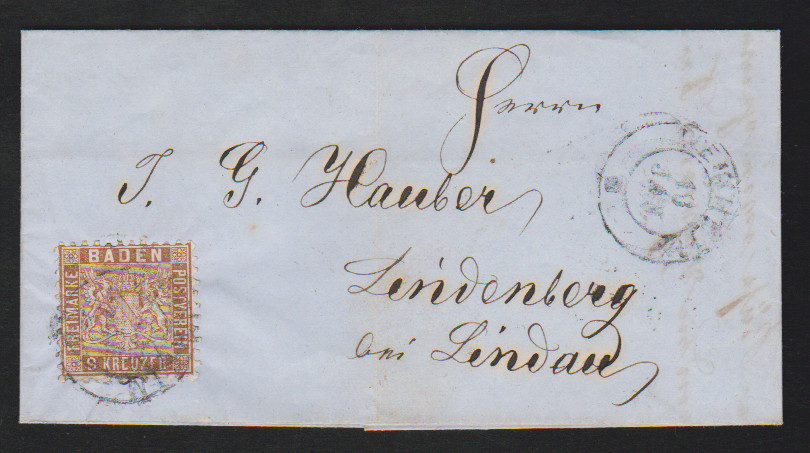 Herrn
J. G. Hauber
Lindenberg
bei Lindau
18
JAN
BADEN
FREIMARKE
POSTVEREIN
9 KREUZER